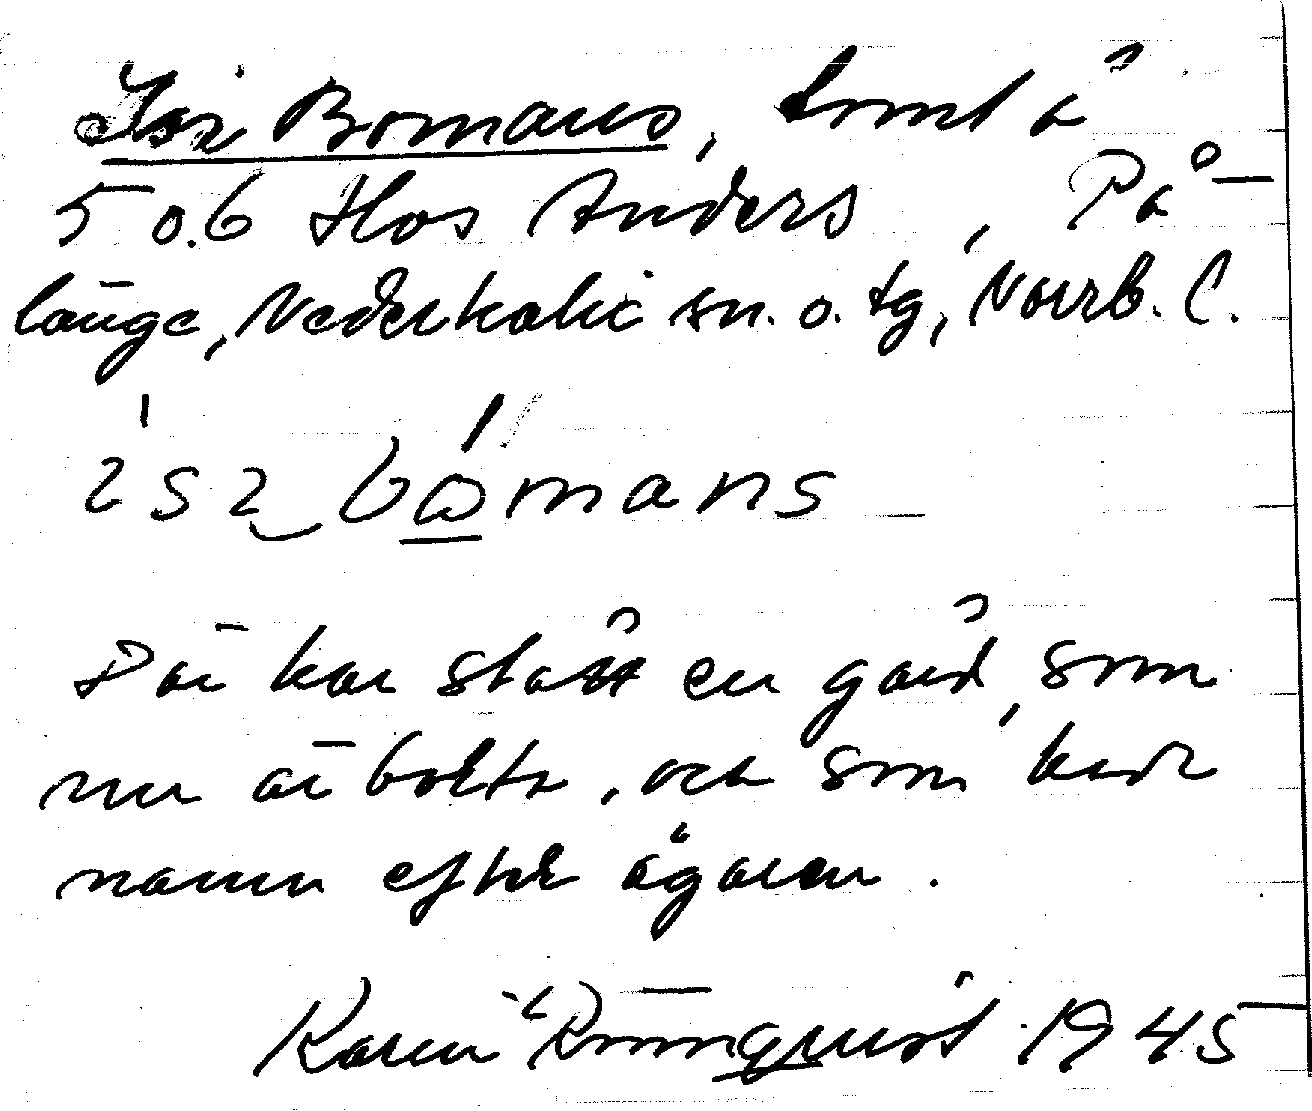 Isx Bomans, tomt å
5 o.6 Hos Anders, På-
länge, Nederkalix sn. o. tg, Norrb. l.
ısz bomans
Där har stått en gård, som
nu är borta, och som hade
namn efter ägaren.
Karin Rönnquist 1945